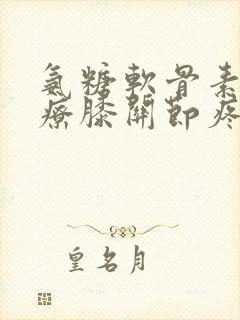 氨糖軟骨素
療膝關節疼
皇名月